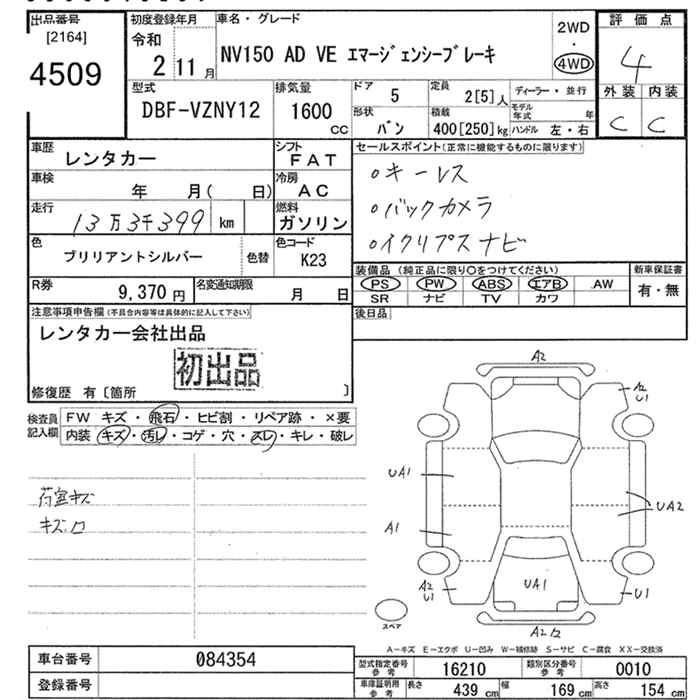 出品番号
[2164]
4509
初度登録年月
令和
2 11月
車名・グレード
NV150 AD VE エマージェンシーブレーキ
2WD
・
4WD
評価点
4
外装 内装
C C
型式
DBF-VZNY12
排気量
1600
CC
ドア
5
形状
バン
定員
2[5]人
積載
400[250]kg
ディーラー・並行
モデル年式 年
ハンドル 左・右
車歴
レンタカー
シフト
FAT
車検
年 月( 日)
冷房
AC
走行
13万3千399 km
燃料
ガソリン
色
ブリリアントシルバー
色替
色コード
K23
R券
9,370円
名変通知期限
月 日
セールスポイント(正常に機能するものに限ります)
○キーレス
○バックカメラ
○イクリプスナビ
装備品 (純正品に限り○をつけてください)
PS PW ABS エアB AW
SR ナビ TV カワ
新車保証書
有・無
後日品
注意事項申告欄(不具合内容等は具体的に記入して下さい)
レンタカー会社出品
初出品
修復歴 有〔箇所 〕
検査員記入欄
FW キズ・飛石・ヒビ割・リペア跡・×要
内装 キズ・汚レ・コゲ・穴・スレ・キレ・破レ
荷室キズ
キズ口
A2
A2
U1
UA1
UA2
A1
A2
U1
UA1
U1
スペア
A=キズ E=エクボ U=凹み W=補修跡 S=サビ C=腐食 XX=交換済
車台番号
084354
登録番号
型式指定番号
参考
16210
類別区分番号
参考
0010
車庫証明用
参考
長さ 439 cm 幅 169 cm 高さ 154 cm